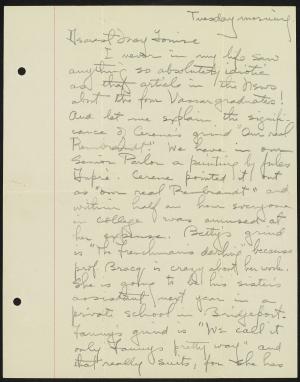 Tuesday morning
Dearest
I never in my life saw
anything so absolutely idiotic
as that article in the News
about the four Vassar graduates!
And let me explain the signifi-
cance of Cerene's grind "Our real
Rembrandt". We have in our
Senior Parlor a painting by Jules
Dupré. Cerene pointed it out
as "our real Rembrandt" and
within half an hour everyone
in college was amused at
her expense. Betty's grind
is "The Frenchman's darling" because
prof. Bracq is crazy about her work.
She is going to be his sister's
assistant next year in a
private school in Bridgeport.
Fanny's grind is "We call it
only Fanny's pretty way" and
that really suits, for she has